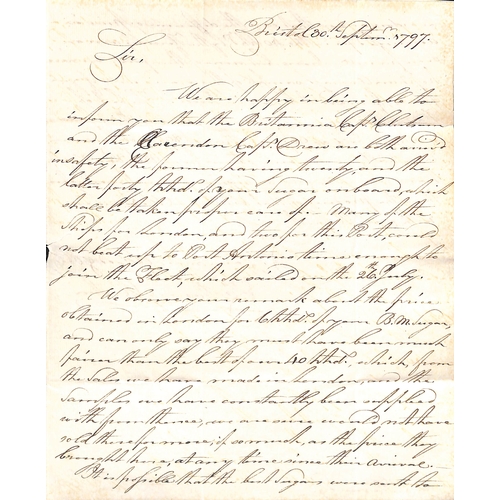 Bristol 30.th Septem.r 1797.
Sir,
We are happy in being able to
inform you that the Britannia Cap.t
and the Clarendon Cap.t Drew are both arrived
in safety, the former having twenty, and the
latter forty Hhds. of your Sugar on board, which
shall be taken proper care of, — Many of the
Ships for London, and two for this Port, could
not beat up to Port Antonio time enough to
join the Fleet, which sailed on the 26.th July.
We observe your remark about the price
obtained in London for 6 Hhds. of your B. M. Sugar,
and can only say they must have been much
fairer than the best of our 40 Hhds. which, from
the Sales we have made in London, and the
Samples we have constantly been supplied
with from thence, we are sure would not have
sold there for more, if so much, as the price they
brought here, at any time since their arrival.
It is possible that the best Sugars were sent to